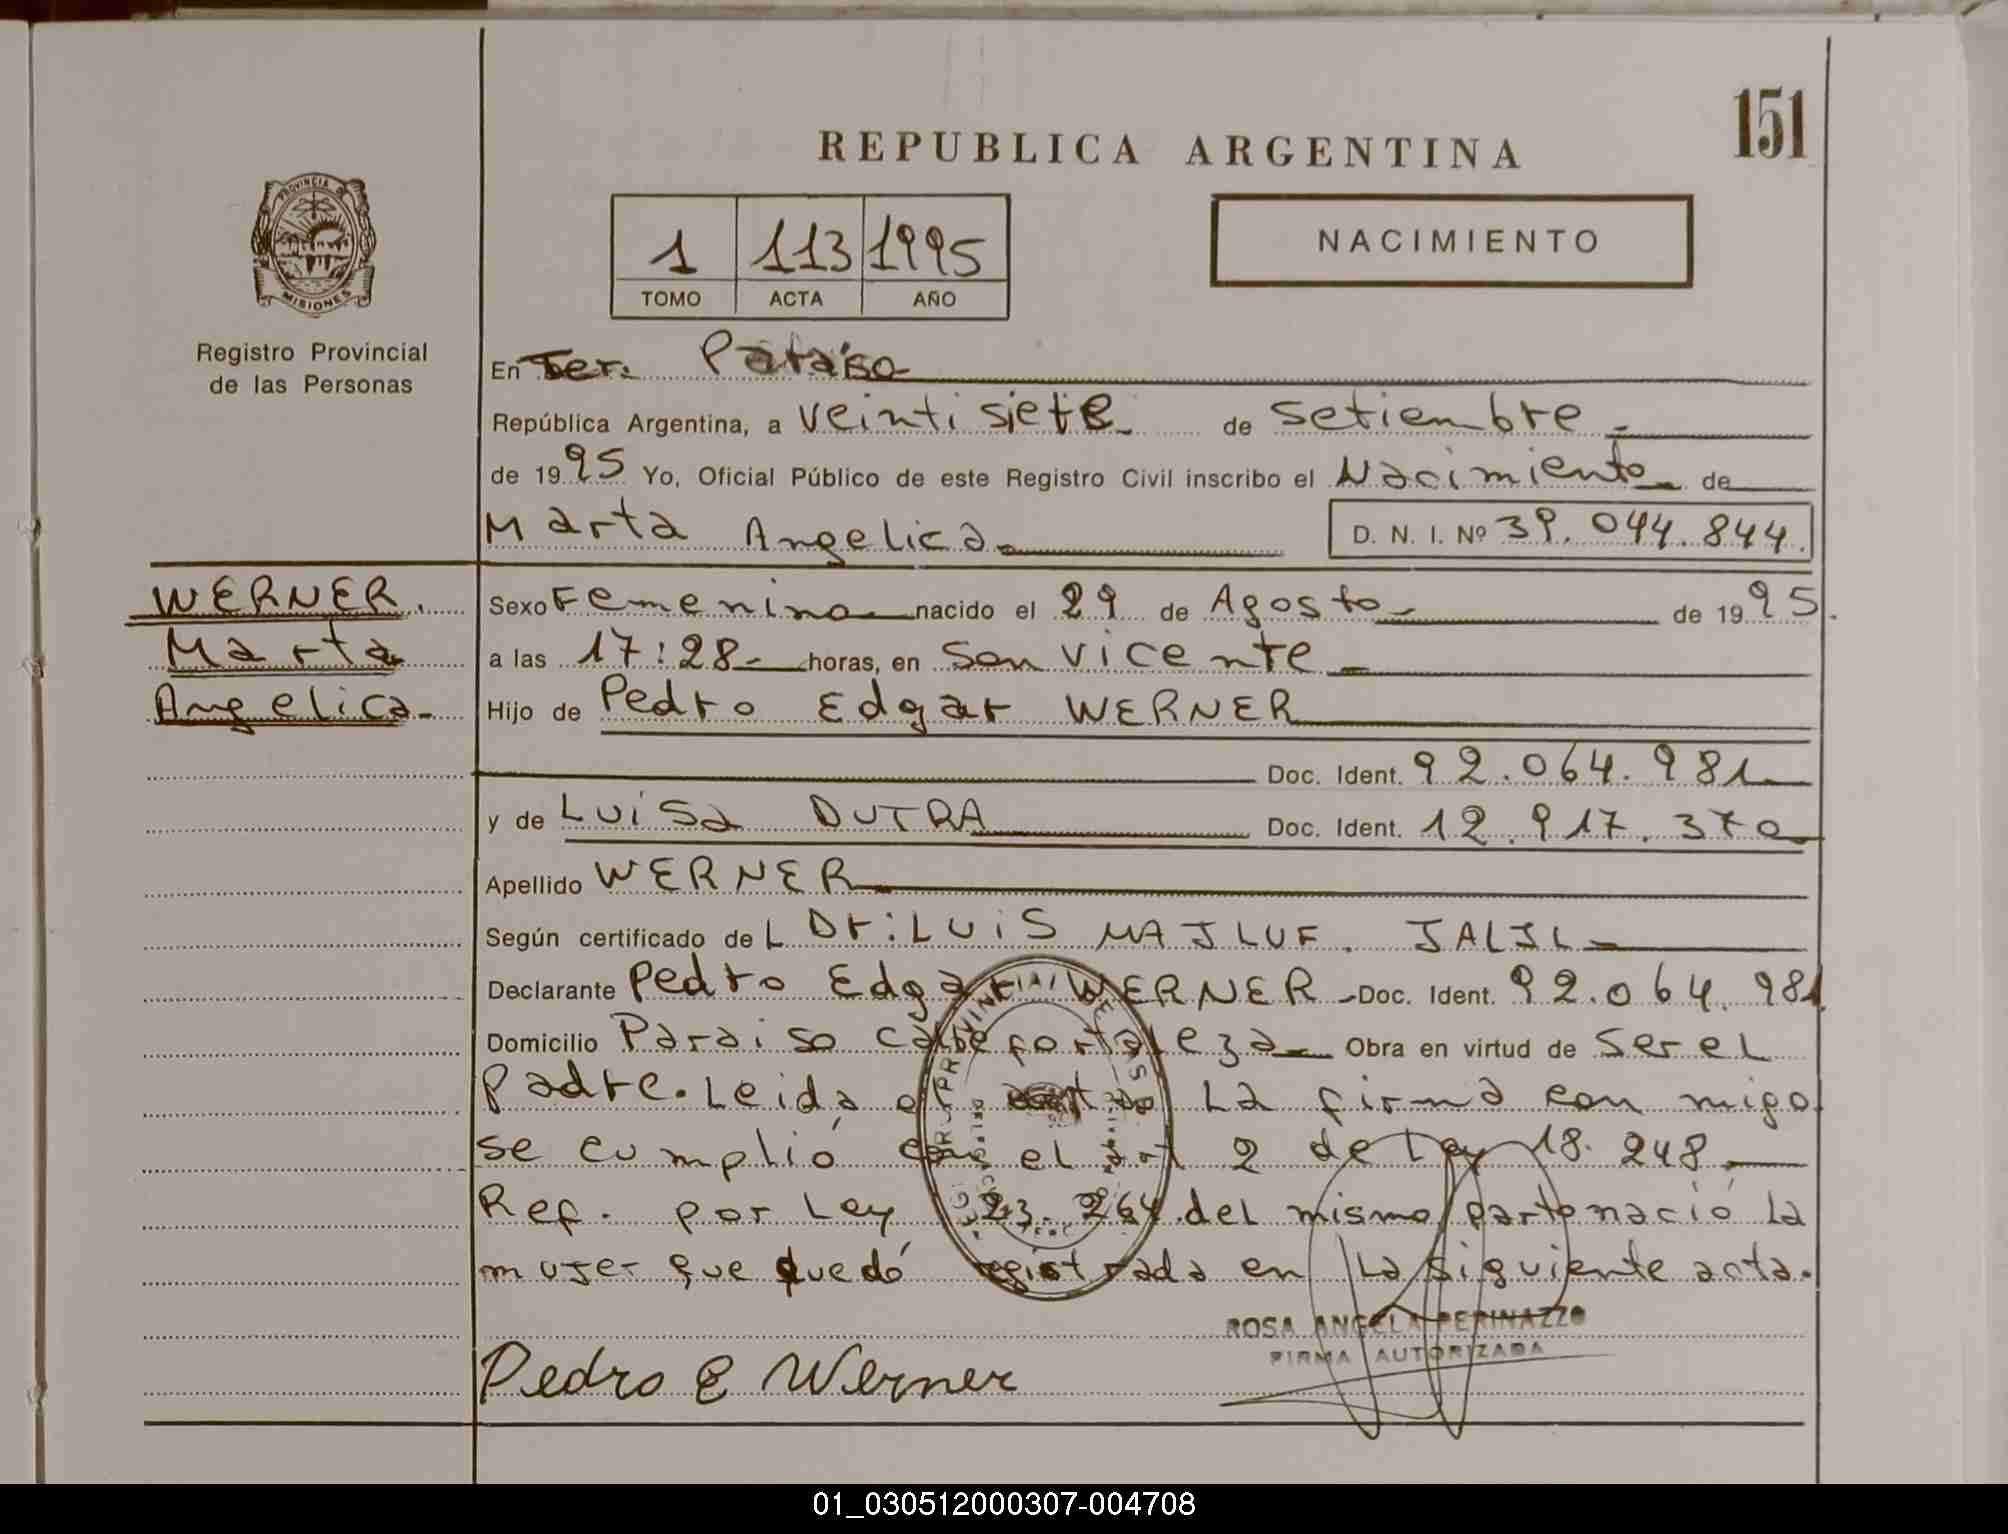 151
REPUBLICA ARGENTINA
PROVINCIA DE
MISIONES
Registro Provincial
de las Personas
1 113 1995
TOMO ACTA AÑO
NACIMIENTO
En Ter. Paraiso
República Argentina, a Veintisiete de Setiembre
de 1995 Yo, Oficial Público de este Registro Civil inscribo el Nacimiento de
Marta Angelica D. N. I. Nº 39.044.844.
WERNER.
Marta
Angelica
Sexo Femenino nacido el 29 de Agosto de 1995.
a las 17:28 horas, en San Vicente
Hijo de Pedro Edgar WERNER
Doc. Ident. 92.064.981
y de Luisa DUTRA Doc. Ident. 12.917.370
Apellido WERNER
Según certificado de L Dr: LUIS MAJLUF. JALIL
Declarante Pedro Edgar WERNER Doc. Ident. 92.064.981
Domicilio Paraiso calle fortaleza Obra en virtud de ser el
Padre. Leida el acta La firma con migo
se cumplió con el art 2 de Ley 18.248
Ref. por Ley 23.264. del mismo parto nació La
mujer que quedó registrada en La siguiente acta.
ROSA ANGELA PERINAZZO
FIRMA AUTORIZADA
Pedro E Werner
01_030512000307-004708